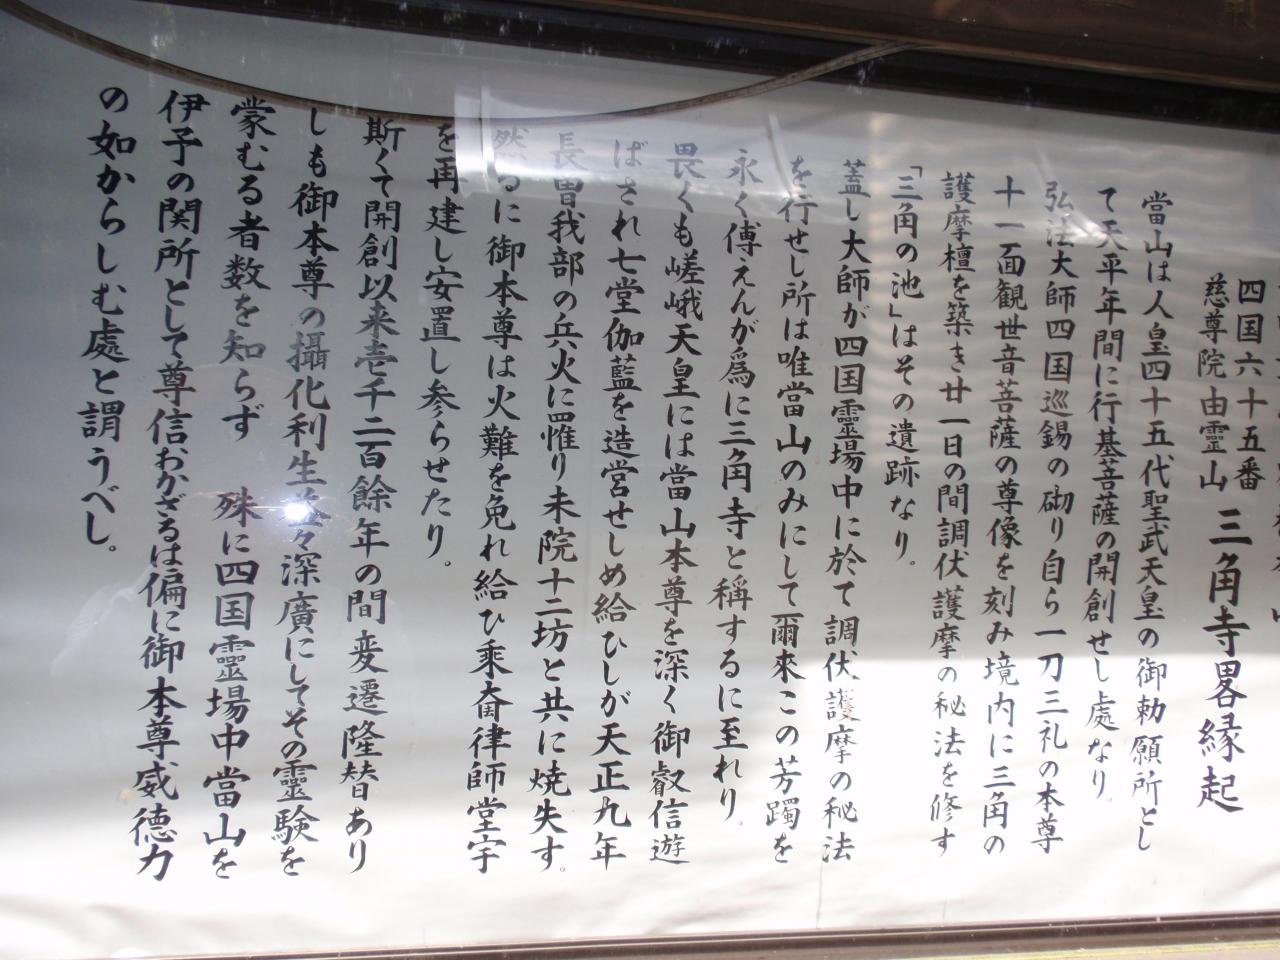 四国六十五番
慈尊院由霊山
三角寺畧縁起
當山は人皇四十五代聖武天皇の御勅願所とし
て天平年間に行基菩薩の開創せし處なり。
弘法大師四国巡錫の砌り自ら一刀三礼の本尊
十一面観世音菩薩の尊像を刻み境内に三角の
護摩檀を築き廿一日の間調伏護摩の秘法を修す
「三角の池」はその遺跡なり。
蓋し大師が四国靈場中に於て調伏護摩の秘法
を行せし所は唯當山のみにして爾來この芳躅を
永く傳えんが爲に三角寺と稱するに至れり。
畏くも嵯峨天皇には當山本尊を深く御叡信遊
ばされ七堂伽藍を造営せしめ給ひしが天正九年
長曽我部の兵火に罹り末院十二坊と共に焼失す。
然るに御本尊は火難を免れ給ひ乘奝律師堂宇
を再建し安置し参らせたり。
斯くて開創以来壱千二百餘年の間変遷隆替あり
しも御本尊の攝化利生益々深廣にしてその靈験を
蒙むる者数を知らず 殊に四国靈場中當山を
伊予の関所として尊信おかざるは偏に御本尊威徳力
の如からしむ處と謂うべし。